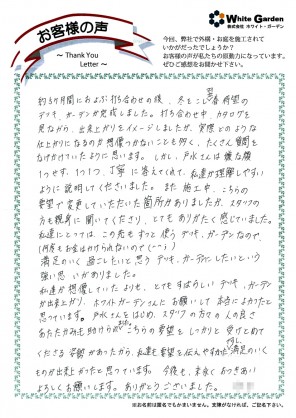 White Garden
株式会社 ホワイト・ガーデン
お客様の声
～ Thank You
Letter ～
今回、弊社で外構・お庭を施工されて
いかがだったでしょうか？
お客様の声が私たちの原動力になっています。
ぜひご感想をお聞かせ下さい。
約5ヶ月間におよぶ打ち合わせの後、冬をこし翌春待望の
デッキ、ガーデンが完成しました。打ち合わせ中、カタログを
見ながら、出来上がりをイメージしましたが、実際どのような
仕上がりになるのか想像つかないことも多く、たくさん質問を
なげかけていたように思います。しかし、戸水さんは嫌な顔
1つせず、1つ1つ、丁寧に答えてくれて、私達が理解しやすい
ように説明してくださいました。また施工中、こちらの
希望で変更していただいた箇所がありましたが、スタッフの
方も親身に聞いてくださり、とてもありがたく感じていました。
私達にとっては、この先もずっと使うデッキ、ガーデンなので、
(何度もお金はかけられないので(^-^))
満足のいく過ごしたいと思うデッキ、ガーデンにしたいという
強い思いがありました。
私達が想像していたよりも、とてもすばらしいデッキ、ガーデン
が出来上がり、ホワイトガーデンさんにお願いして本当によかったと
思っています。戸水さんをはじめ、スタッフの方々の人の良さ
あたたかみも感じながら、こちらの希望をしっかりと受けとめて
くださる姿勢があったから、私達も希望を伝えやすかったし、満足のいく
ものが出来上がったと思っています。今後も、末永くおつきあい
よろしくお願いします。ありがとうございました。
※お名前は匿名でもかまいません。支障がなければ、ご記名下さい。